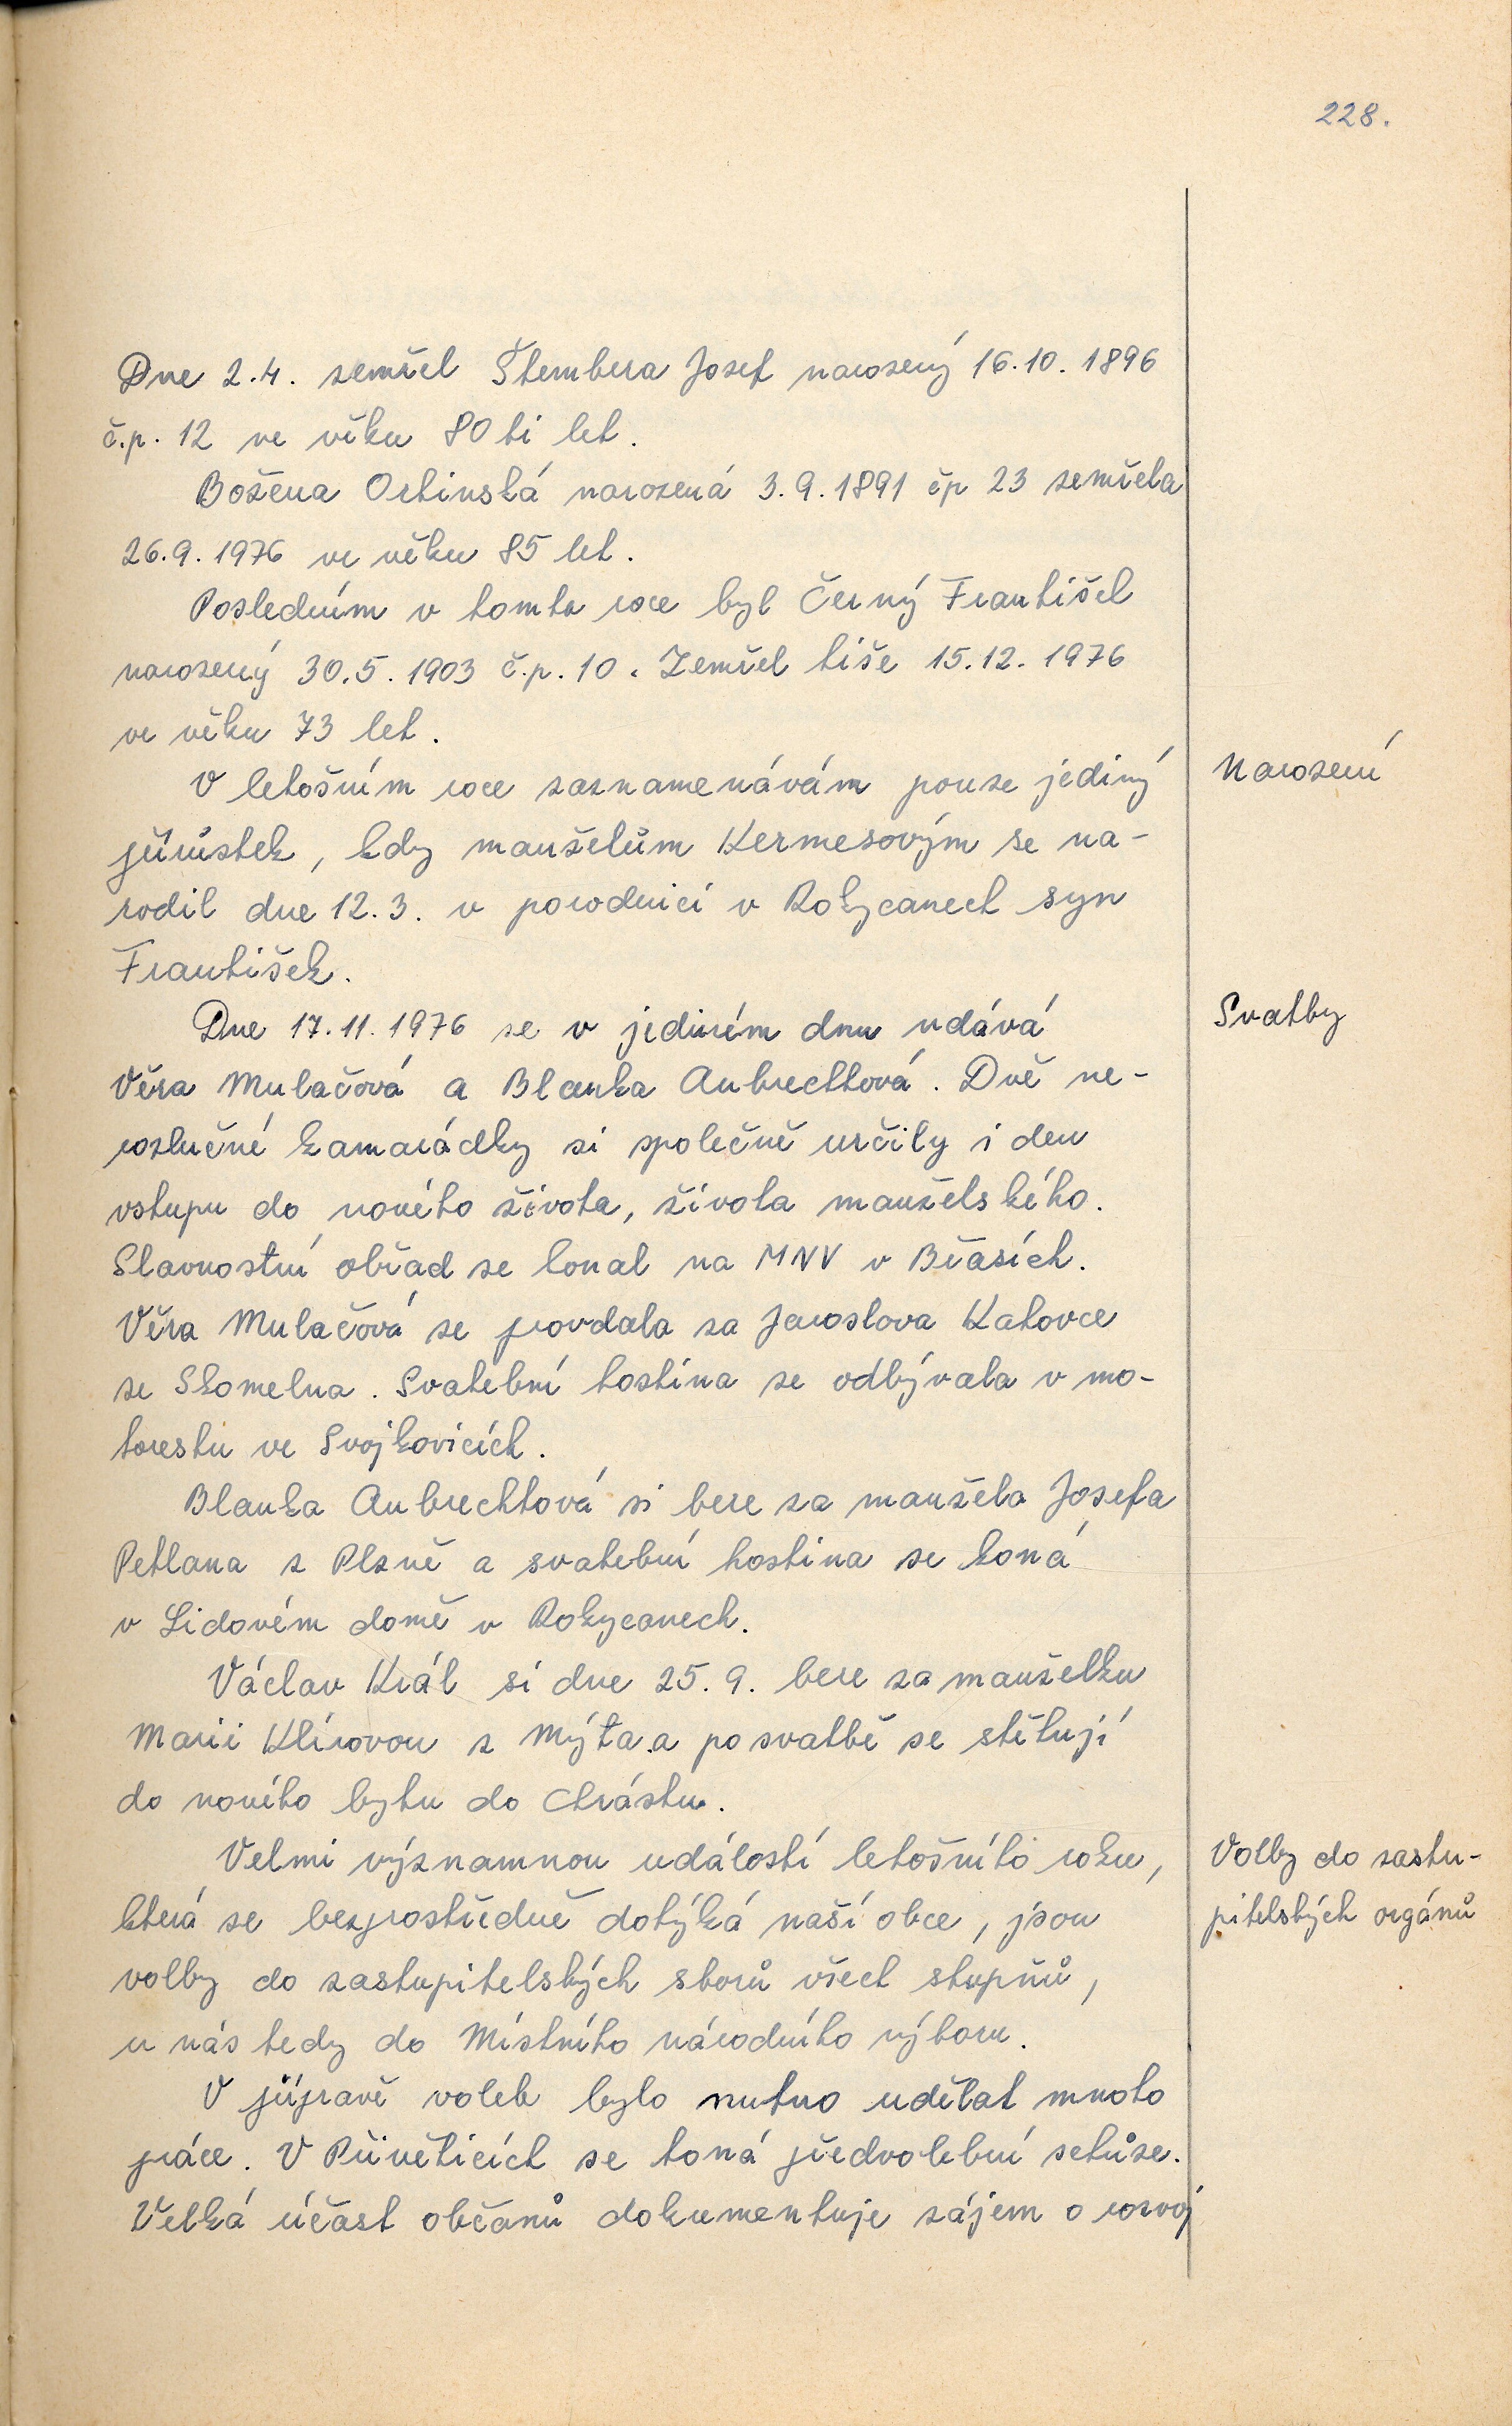 228.
Dne 2.4. zemřel Štembera Josef narozený 16.10. 1896
č.p. 12 ve věku 80 ti let.
Božena Ortinská narozená 3.9.1891 čp 23 zemřela
26.9.1976 ve věku 85 let.
Posledním v tomto roce byl Černý František
narozený 30.5.1903 č.p. 10. Zemřel tiše 15.12. 1976
ve věku 73 let.
V letošním roce zaznamenávám pouze jediný
Narození
přírůstek, kdy manželům Kermesovým se na-
rodil dne 12.3. v porodnici v Rokycanech syn
František.
Dne 17.11.1976 se v jediném dnu vdává
Svatby
Věra Mulačová a Blanka Aubrechtová. Dvě ne-
rozlučné kamarádky si společně určily i den
vstupu do nového života, života manželského.
Slavnostní obřad se konal na MNV v Břasích.
Věra Mulačová se provdala za Jaroslava Katovce
ze Skomelna. Svatební hostina se odbývala v mo-
torestu ve Svojkovicích.
Blanka Aubrechtová si bere za manžela Josefa
Petlana z Plzně a svatební hostina se koná
v Lidovém domě v Rokycanech.
Václav Král si dne 25.9. bere za manželku
Marii Klírovou z Mýta a po svatbě se stěhují
do nového bytu do Chrástu.
Velmi významnou událostí letošního roku,
Volby do zastu-
která se bezprostředně dotýká naší obce, jsou
pitelských orgánů
volby do zastupitelských sborů všech stupňů,
u nás tedy do Místního národního výboru.
V přípravě voleb bylo nutno udělat mnoho
práce. V Přívěticích se koná předvolební schůze.
Velká účast občanů dokumentuje zájem o rozvoj